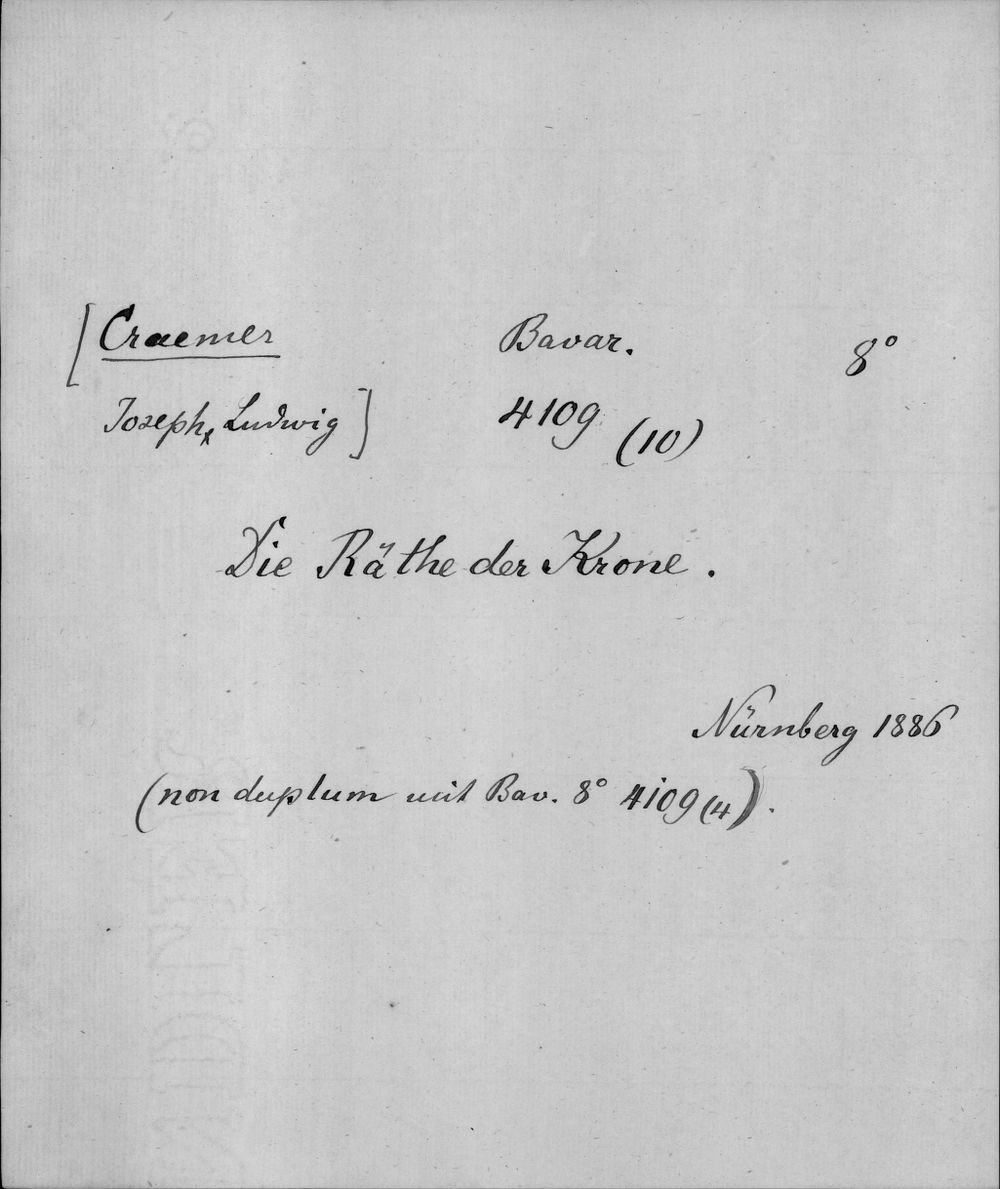 [Craemer Bavar. 8°
Joseph, Ludwig] 4109 (10)
Die Räthe der Krone.
Nürnberg 1886
(non duplum mit Bav. 8° 4109 (4)).